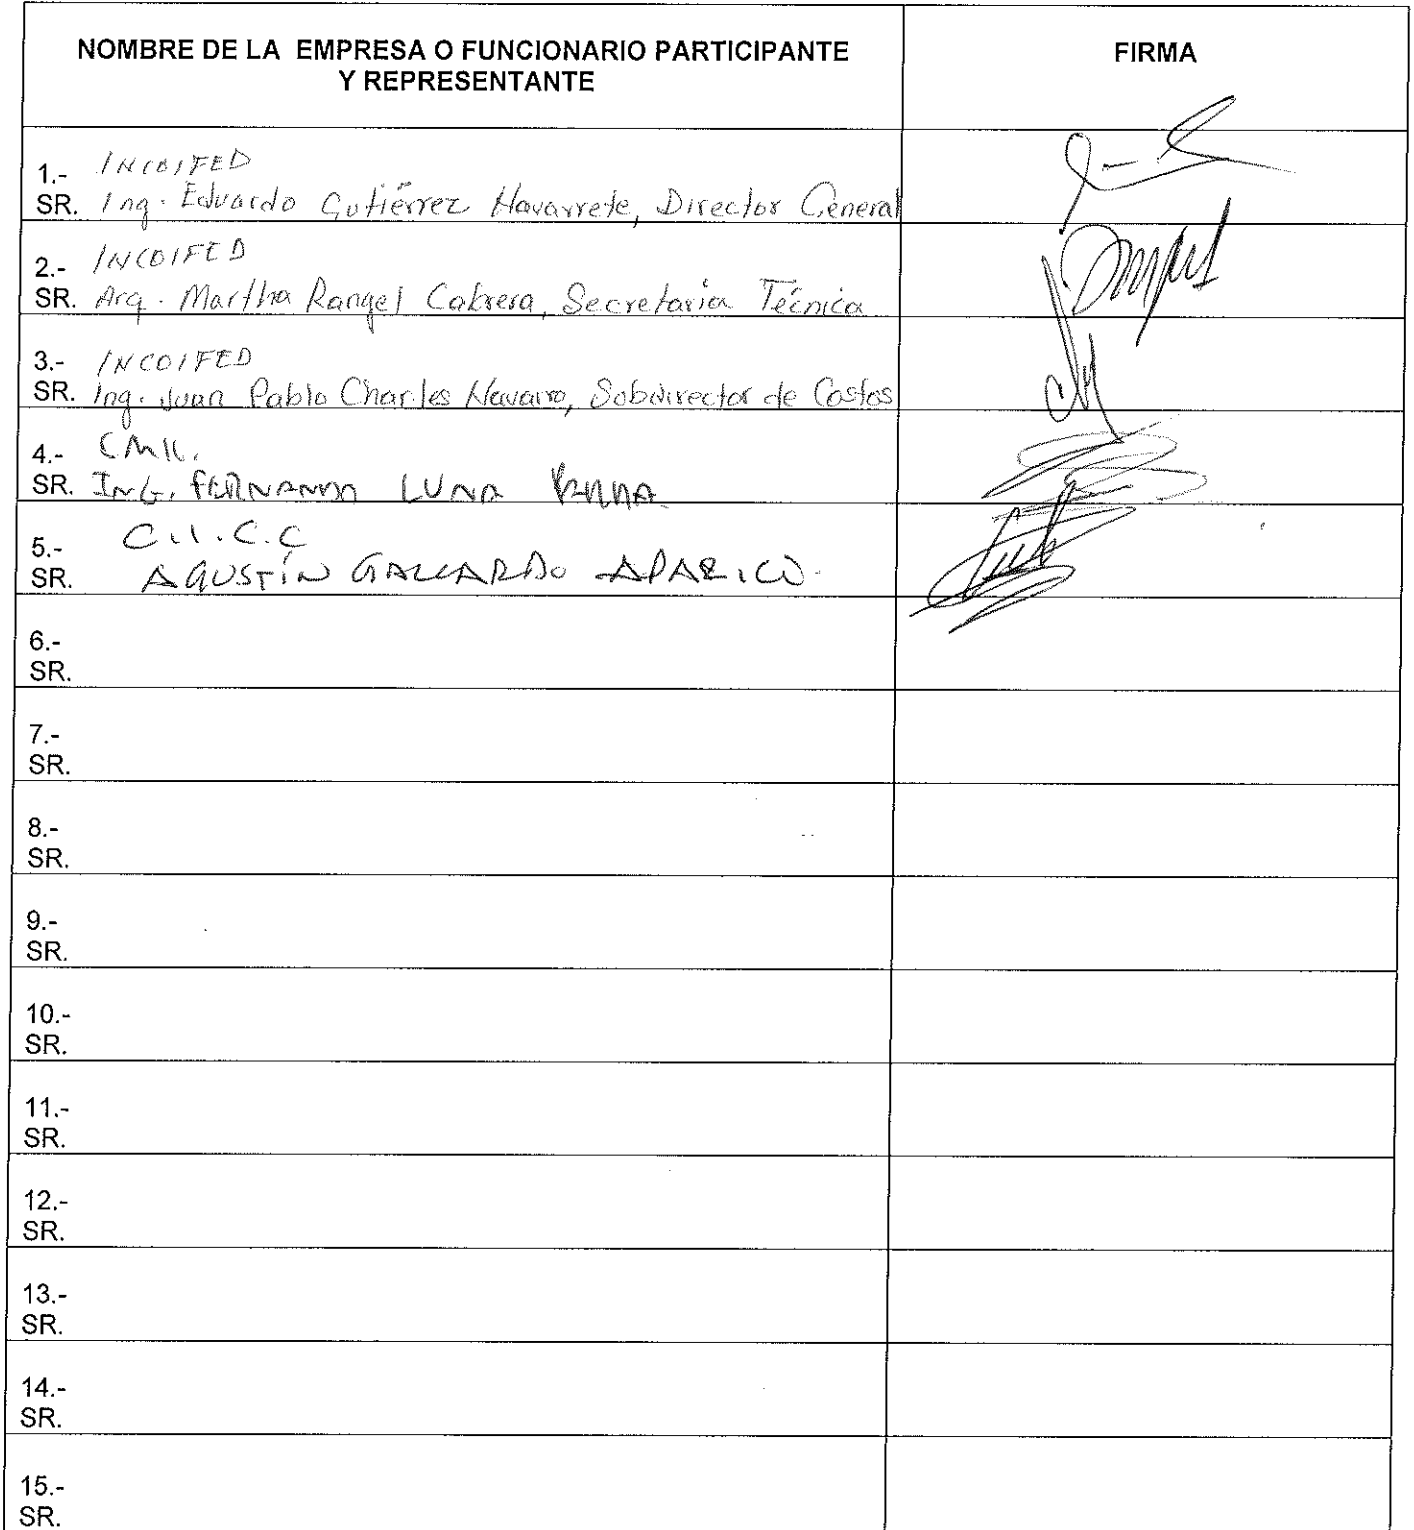 NOMBRE DE LA EMPRESA O FUNCIONARIO PARTICIPANTE
Y REPRESENTANTE
FIRMA
1.- INCOIFED
SR. Ing. Eduardo Gutiérrez Navarrete, Director General
2.- INCOIFED
SR. Arq. Martha Rangel Cabrera, Secretaria Técnica
3.- INCOIFED
SR. Ing. Juan Pablo Charles Navarro, Subdirector de Costos
4.-
SR. ING. FERNANDO LUNA
5.- C.I.C.C
SR. AGUSTÍN GALLARDO APARICIO.
6.-
SR.
7.-
SR.
8.-
SR.
9.-
SR.
10.-
SR.
11.-
SR.
12.-
SR.
13.-
SR.
14.-
SR.
15.-
SR.